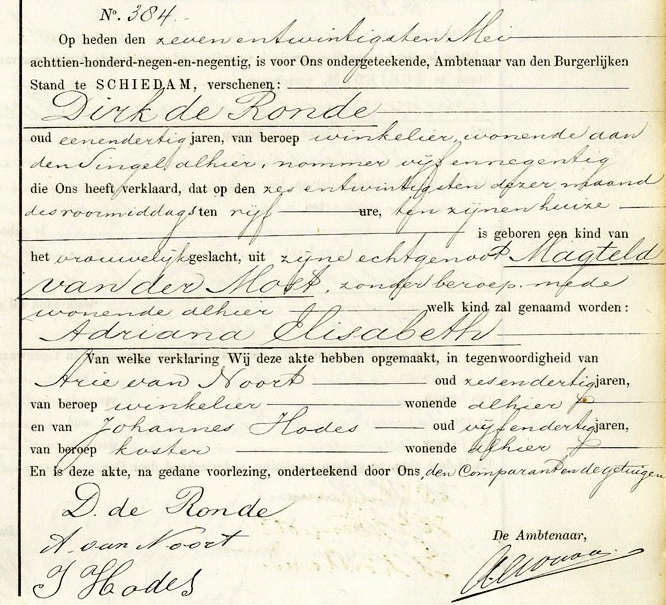 No. 384.
Op heden den zeven en twintigsten Mei
achttien-honderd-negen-en-negentig, is voor Ons ondergeteekende, Ambtenaar van den Burgerlijken
Stand te SCHIEDAM, verschenen:
Dirk de Ronde
oud eenendertig jaren, van beroep winkelier, wonende aan
den Singel alhier, nommer vijf en negentig
die Ons heeft verklaard, dat op den zes en twintigsten dezer maand
des voormiddags ten vijf ure, ten zijnen huize
is geboren een kind van
het vrouwelijk geslacht, uit zijne echtgenoot Magteld
van der Most, zonder beroep, mede
wonende alhier welk kind zal genaamd worden:
Adriana Elisabeth
Van welke verklaring Wij deze akte hebben opgemaakt, in tegenwoordigheid van
Arie van Noort oud zesendertig jaren,
van beroep winkelier wonende alhier
en van Johannes Hodes oud vijfendertig jaren,
van beroep koster wonende alhier
En is deze akte, na gedane voorlezing, onderteekend door Ons, den Comparant en de getuigen
D. de Ronde
A. van Noort
J Hodes
De Ambtenaar,